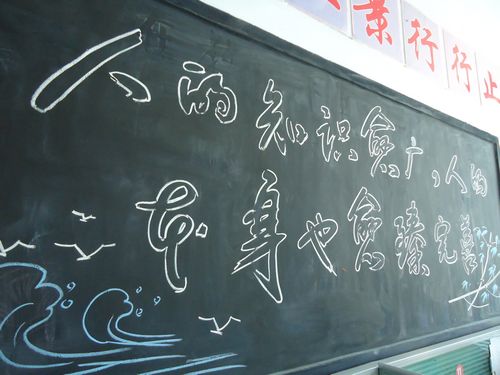 景行行止
人的知识愈广，人的
本身也愈臻完善